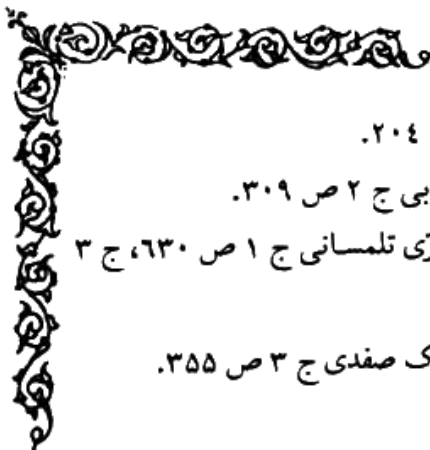 ۲۰٤.
بی ج ۲ ص ۳۰۹.
ژی تلمسانی ج ۱ ص ٦۳۰، ج ۳
ک صفدی ج ۳ ص ۳۵۵.